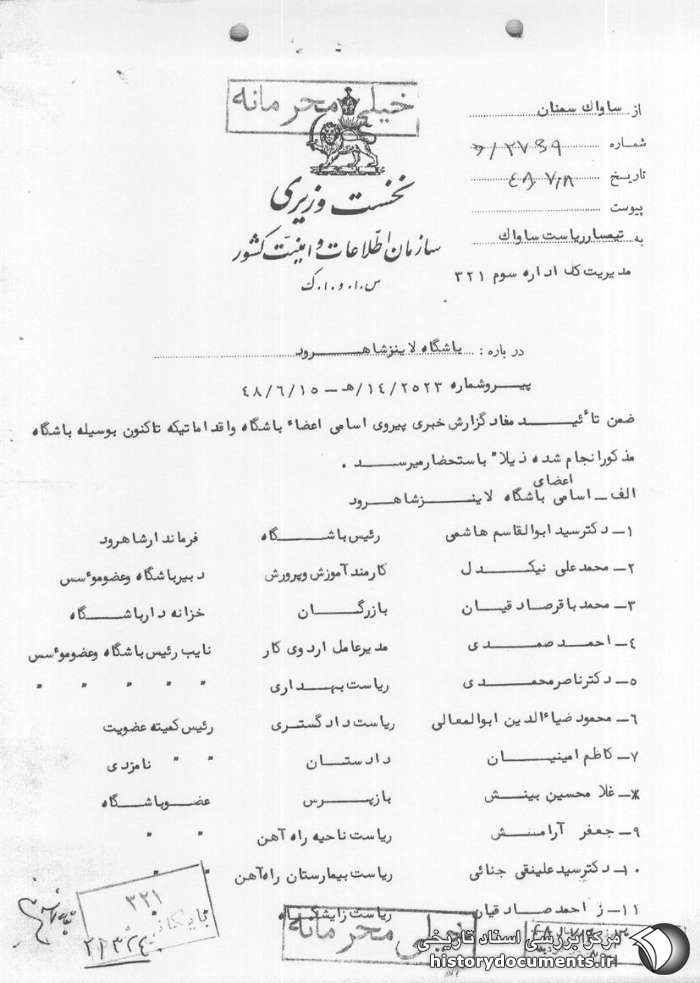 خیلی محرمانه
نخست وزیری
سازمان اطلاعات و امنیت کشور
س.ا.و.ا.ک
از ساواك سمنان
شماره
تاریخ ٤٨/٧/٨
پیوست
به تیمسار ریاست ساواك
مدیریت کل اداره سوم ٣٢١
در باره : باشگاه لاینز شاهرود
پیرو شماره ١٤/٢٥٢٣/ه‍ – ٤٨/٦/١٥
ضمن تائید مفاد گزارش خبری پیروی اسامی اعضاء باشگاه و اقداماتیکه تاکنون بوسیله باشگاه
مذکور انجام شده ذیلا" باستحضار میرسد .
الف – اسامی اعضای باشگاه لاینز شاهرود
١– دکتر سید ابوالقاسم هاشمی رئیس باشگاه فرماندار شاهرود
٢– محمد علی نیکدل کارمند آموزش و پرورش دبیر باشگاه و عضو موءسس
٣– محمد باقر صادقیان بازرگان خزانه دار باشگاه
٤– احمد صمدی مدیر عامل اردوی کار نایب رئیس باشگاه و عضو موءسس
٥– دکتر ناصر محمدی ریاست بهداری " " " " "
٦– محمود ضیاءالدین ابوالمعالی ریاست دادگستری رئیس کمیته عضویت
٧– کاظم امینیان دادستان " " نامزدی
٨– غلامحسین بینش بازپرس عضو باشگاه
٩– جعفر آرامش ریاست ناحیه راه آهن " "
١٠– دکتر سید علینقی جنائی ریاست بیمارستان راه آهن " "
١١– احمد صادقیان ریاست زایشگاه
خیلی محرمانه
٣٢١
بایگانی
٢١٣٢٤
مرکز بررسی اسناد تاریخی
historydocuments.ir